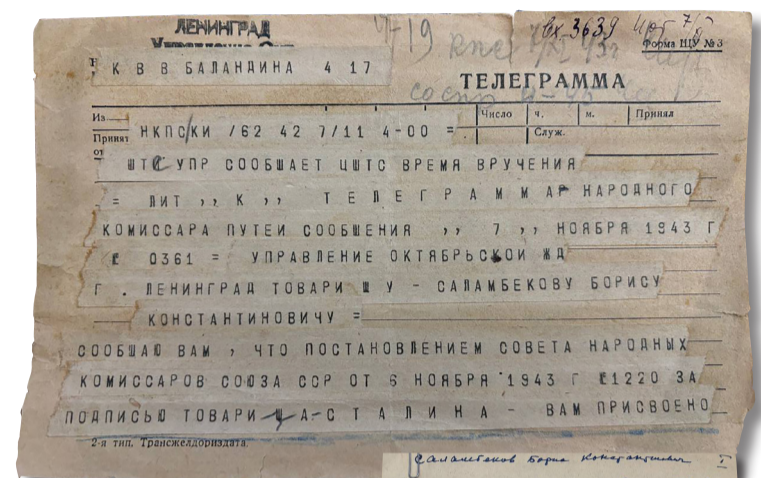 ЛЕНИНГРАД
419 вх 3639
Форма ЩУ № 3
К В В БАЛАНДИНА 4 17
ТЕЛЕГРАММА
Из Число ч. м. Принял
Принят НКПС/КИ /62 42 7/11 4-00 = Служ.
от
ШТС УПР СООБШАЕТ ЦШТС ВРЕМЯ ВРУЧЕНИЯ
= ЛИТ ,, К ,, ТЕЛЕГРАММАР НАРОДНОГО
КОМИССАРА ПУТЕИ СООБШЕНИЯ ,, 7 ,, НОЯБРЯ 1943 Г
0361 = УПРАВЛЕНИЕ ОКТЯБРЬСКОИ ЖД
Г . ЛЕНИНГРАД ТОВАРИ Ш У - САЛАМБЕКОВУ БОРИСУ
КОНСТАНТИНОВИЧУ =
СООБШАЮ ВАМ , ЧТО ПОСТАНОВЛЕНИЕМ СОВЕТА НАРОДНЫХ
КОМИССАРОВ СОЮЗА ССР ОТ 6 НОЯБРЯ 1943 Г £1220 ЗА
ПОДПИСЬЮ ТОВАРИ Щ А-СТАЛИНА - ВАМ ПРИСВОЕНО
2-я тип. Трансжелдориздата.
Саламбеков Борис Константинович I